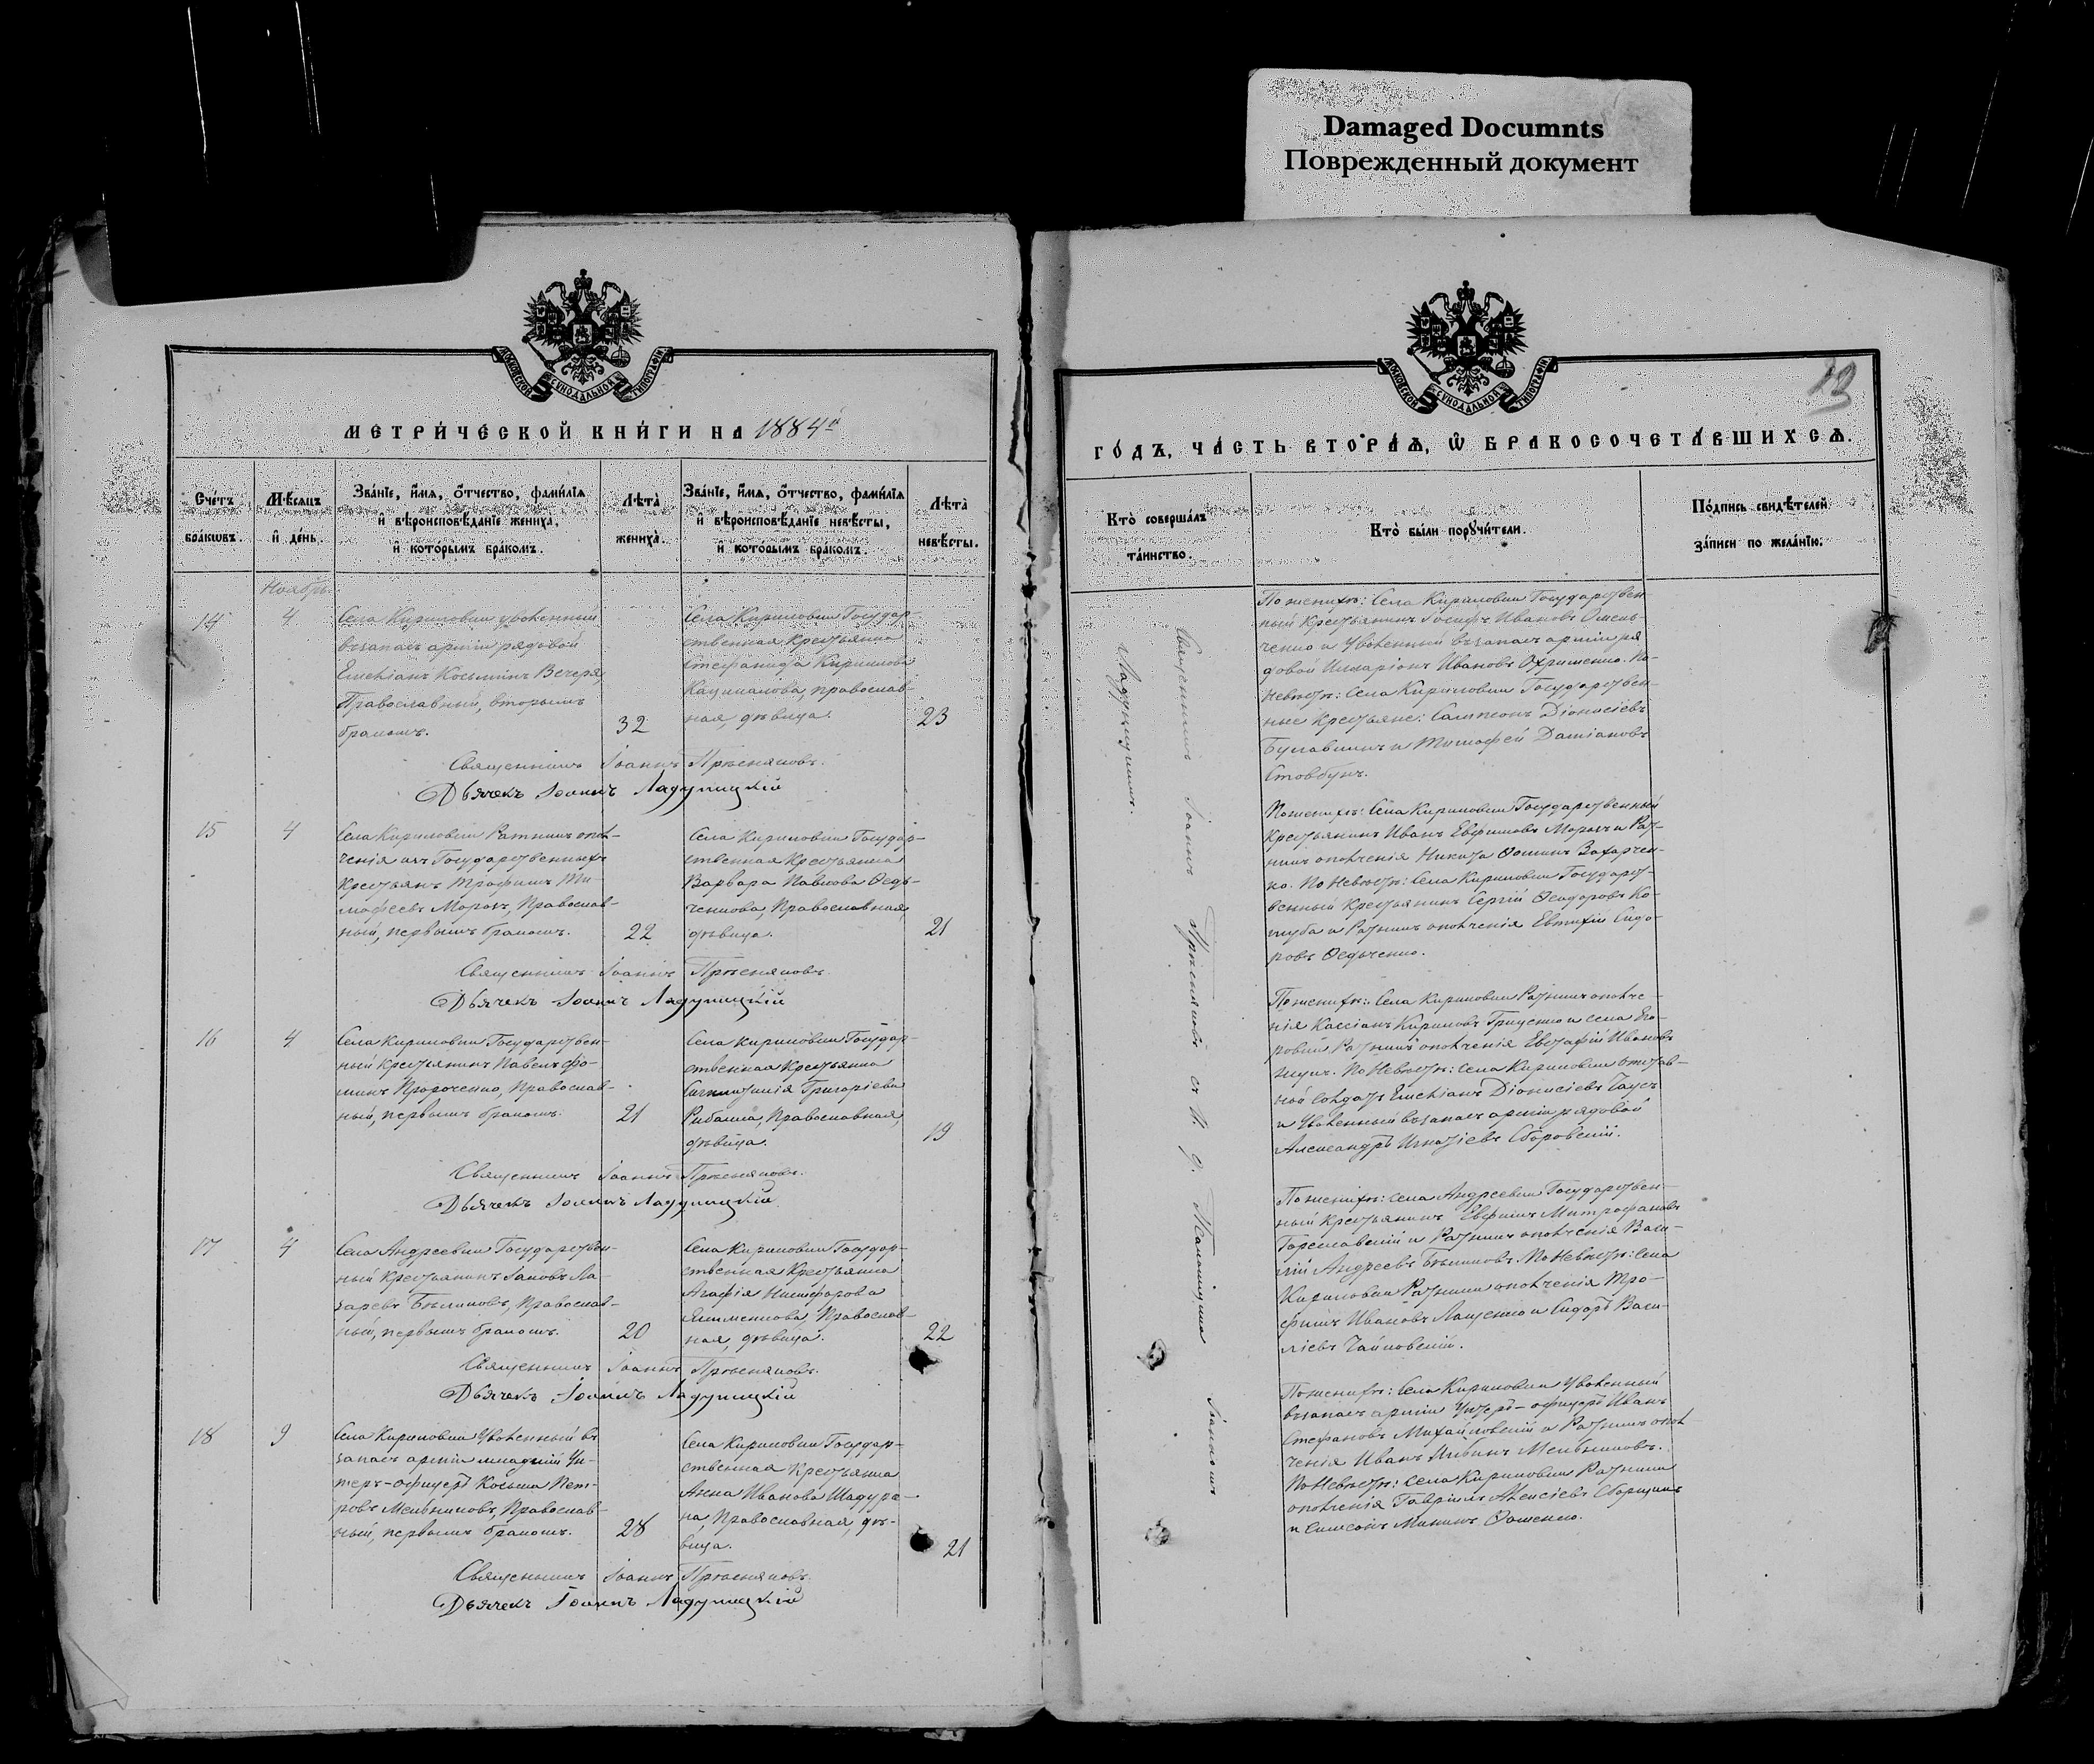 Damaged Documnts
Поврежденный документ
МОСКОВСКОЙ СѴНОДАЛЬНОЙ ТИПОГРАФІИ
МЕТРИЧЕСКОЙ КНИГИ НА 1884й
Счетъ бракѡвъ.
Мѣсяцъ и день.
Званіе, имя, отчество, фамилія
и вѣроисповѣданіе жениха,
и которымъ бракомъ.
Лѣта жениха.
Званіе, имя, отчество, фамилія
и вѣроисповѣданіе невѣсты,
и которымъ бракомъ.
Лѣта невѣсты.
Ноябрь.
14
4
Села Кириловки уволенный
въ запасъ арміи рядовой
Емеліанъ Косьминъ Вечеря,
Православный, вторымъ
бракомъ.
32
Села Кириловки Государ-
ственная Крестьянка
Стефанида Кирилова
православ-
ная, дѣвица.
23
Священникъ Іоаннъ Прѣсняковъ.
Дьячекъ Іоаннъ Ладухицкій
15
4
Села Кириловки Ратникъ опол-
ченія изъ Государственныхъ
Крестьянъ Трофимъ Ти-
мофеевъ Морозъ, Православ-
ный, первымъ бракомъ.
22
Села Кириловки Государ-
ственная Крестьянка
Варвара Павлова Федь-
ченкова, Православная,
дѣвица.
21
Священникъ Іоаннъ Прѣсняковъ.
Дьячекъ Іоаннъ Ладухицкій
16
4
Села Кириловки Государствен-
ный Крестьянинъ Павелъ Фо-
минъ Православ-
ный, первымъ бракомъ.
21
Села Кириловки Государ-
ственная Крестьянка
Григоріева
Православная,
дѣвица.
19
Священникъ Іоаннъ Прѣсняковъ.
Дьячекъ Іоаннъ Ладухицкій
17
4
Села Андреевки Государствен-
ный Крестьянинъ Іаковъ Ла-
заревъ Бѣликовъ, Православ-
ный, первымъ бракомъ.
20
Села Кириловки Государ-
ственная Крестьянка
Агафія Никифорова
Православ-
ная, дѣвица.
22
Священникъ Іоаннъ Прѣсняковъ.
Дьячекъ Іоаннъ Ладухицкій
18
9
Села Кириловки Уволенный въ
запасъ арміи младшій Ун-
теръ-офицеръ Косьма Пет-
ровъ Мельниковъ, Православ-
ный, первымъ бракомъ.
28
Села Кириловки Государ-
ственная Крестьянка
Анна Иванова Шадури-
на, Православная, дѣ-
вица.
21
Священникъ Іоаннъ Прѣсняковъ.
Дьячекъ Іоаннъ Ладухицкій
МОСКОВСКОЙ СѴНОДАЛЬНОЙ ТИПОГРАФІИ
ГОДЪ, ЧАСТЬ ВТОРАЯ, Ѡ БРАКОСОЧЕТАВШИХСЯ.
Кто совершалъ таинство.
Кто были поручители.
Подпись свидѣтелей
записи по желанію.
Священникъ Іоаннъ Прѣсняковъ съ
По женихѣ: Села Кириловки Государствен-
ный Крестьянинъ Іосифъ Ивановъ Омель-
ченко и Уволенный въ запасъ арміи ря
довой Иларіонъ Ивановъ Охрименко. По
невѣстѣ: Села Кириловки Государствен-
ные Крестьяне: Сампсонъ Діонисіевъ
и Тимофей Даміановъ
Стовбунъ.
По женихѣ: Села Кириловки Государственный
Крестьянинъ Иванъ Евфимовъ Морозъ и Рат-
никъ ополченія Никита Фоминъ Захарчен-
ко. По Невѣстѣ: Села Кириловки Государст-
венный Крестьянинъ Сергій Феодоровъ Ко-
и Ратникъ ополченія Евтихій Сидо-
ровъ Федченко.
По женихѣ: Села Кириловки Ратникъ ополче-
нія Кассіанъ Кириловъ Гриценко и села Его-
ровки Ратникъ ополченія Евстафій Ивановъ
По Невѣстѣ: Села Кириловки отстав-
ной Солдатъ Емеліанъ Діонисіевъ
и Уволенный въ запасъ арміи рядовой
Александръ Игнатіевъ Сборовскій.
По женихѣ: Села Андреевки Государствен-
ный Крестьянинъ Евфимъ Митрофановъ
и Ратникъ ополченія Васи-
лій Андреевъ Бѣликовъ. По Невѣстѣ: Села
Кириловки Ратники ополченія Тро-
фимъ Ивановъ Лащенко и Сидоръ Васи-
ліевъ Чайковскій.
По женихѣ: Села Кириловки Уволенный
въ запасъ арміи Унтеръ-офицеръ Иванъ
Стефановъ Михайловскій и Ратникъ опол
ченія Иванъ Мельниковъ.
По Невѣстѣ: Села Кириловки Ратники
ополченія Гавріилъ Алексіевъ Сборщикъ
и Симеонъ Мининъ Фоменко.